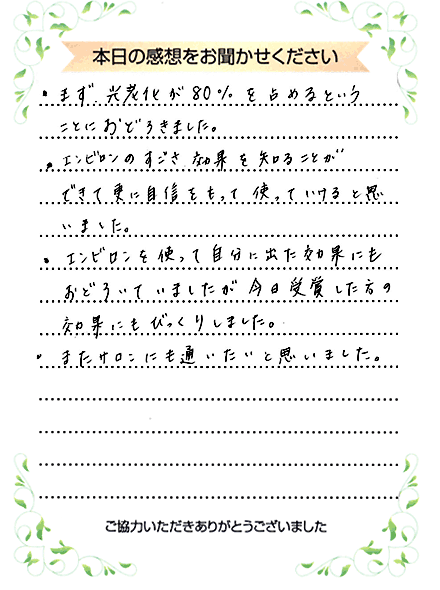 本日の感想をお聞かせください
・まず、光老化が80%を占めるという
ことにおどろきました。
・エンビロンのすごさ、効果を知ることが
できて更に自信をもって使っていけると思
いました。
・エンビロンを使って自分に出た効果にも
おどろいていましたが今日受賞した方の
効果にもびっくりしました。
・またサロンにも通いたいと思いました。
ご協力いただきありがとうございました